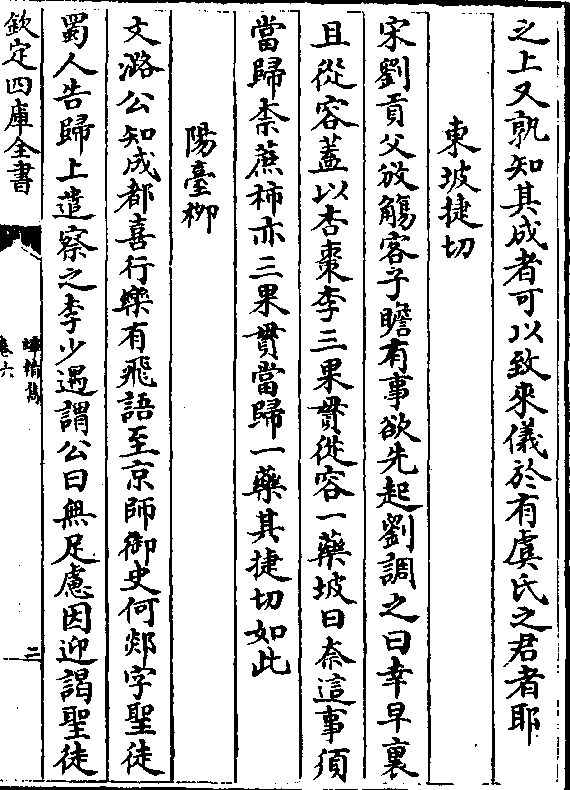 之上又孰知其成者可以致來儀於有虞氏之君者耶
東坡捷切
宋劉貢父放觴客子瞻有事欲先起劉調之曰幸早裏
且從容蓋以杏棗李三果貫從容一藥坡曰柰這事須
當歸柰蔗柿亦三果貫當歸一藥其捷切如此
陽臺柳
文潞公知成都喜行樂有飛語至京師御史何郯字聖徒
蜀人告歸上遣察之李少遇謂公曰無足慮因迎謁聖徒
欽定四庫全書
卷六
二